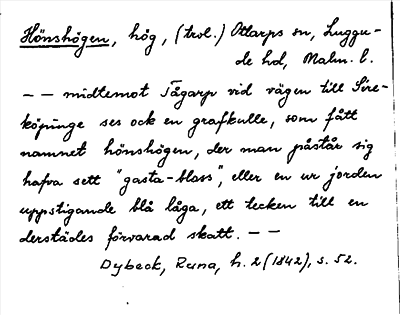 Hönshögen, hög, (trol.) Ottarps sn, Luggu-
de hd, Malm. l.
— — midtemot Tågarp vid vägen till Sire-
köpinge ses ock en grafkulle, som fått
namnet hönshögen, der man påstår sig
hafva sett "gasta-bloss", eller en ur jorden
uppstigande blå låga, ett tecken till en
derstädes förvarad skatt. — —
Dybeck, Runa, h. 2 (1842), s. 52.